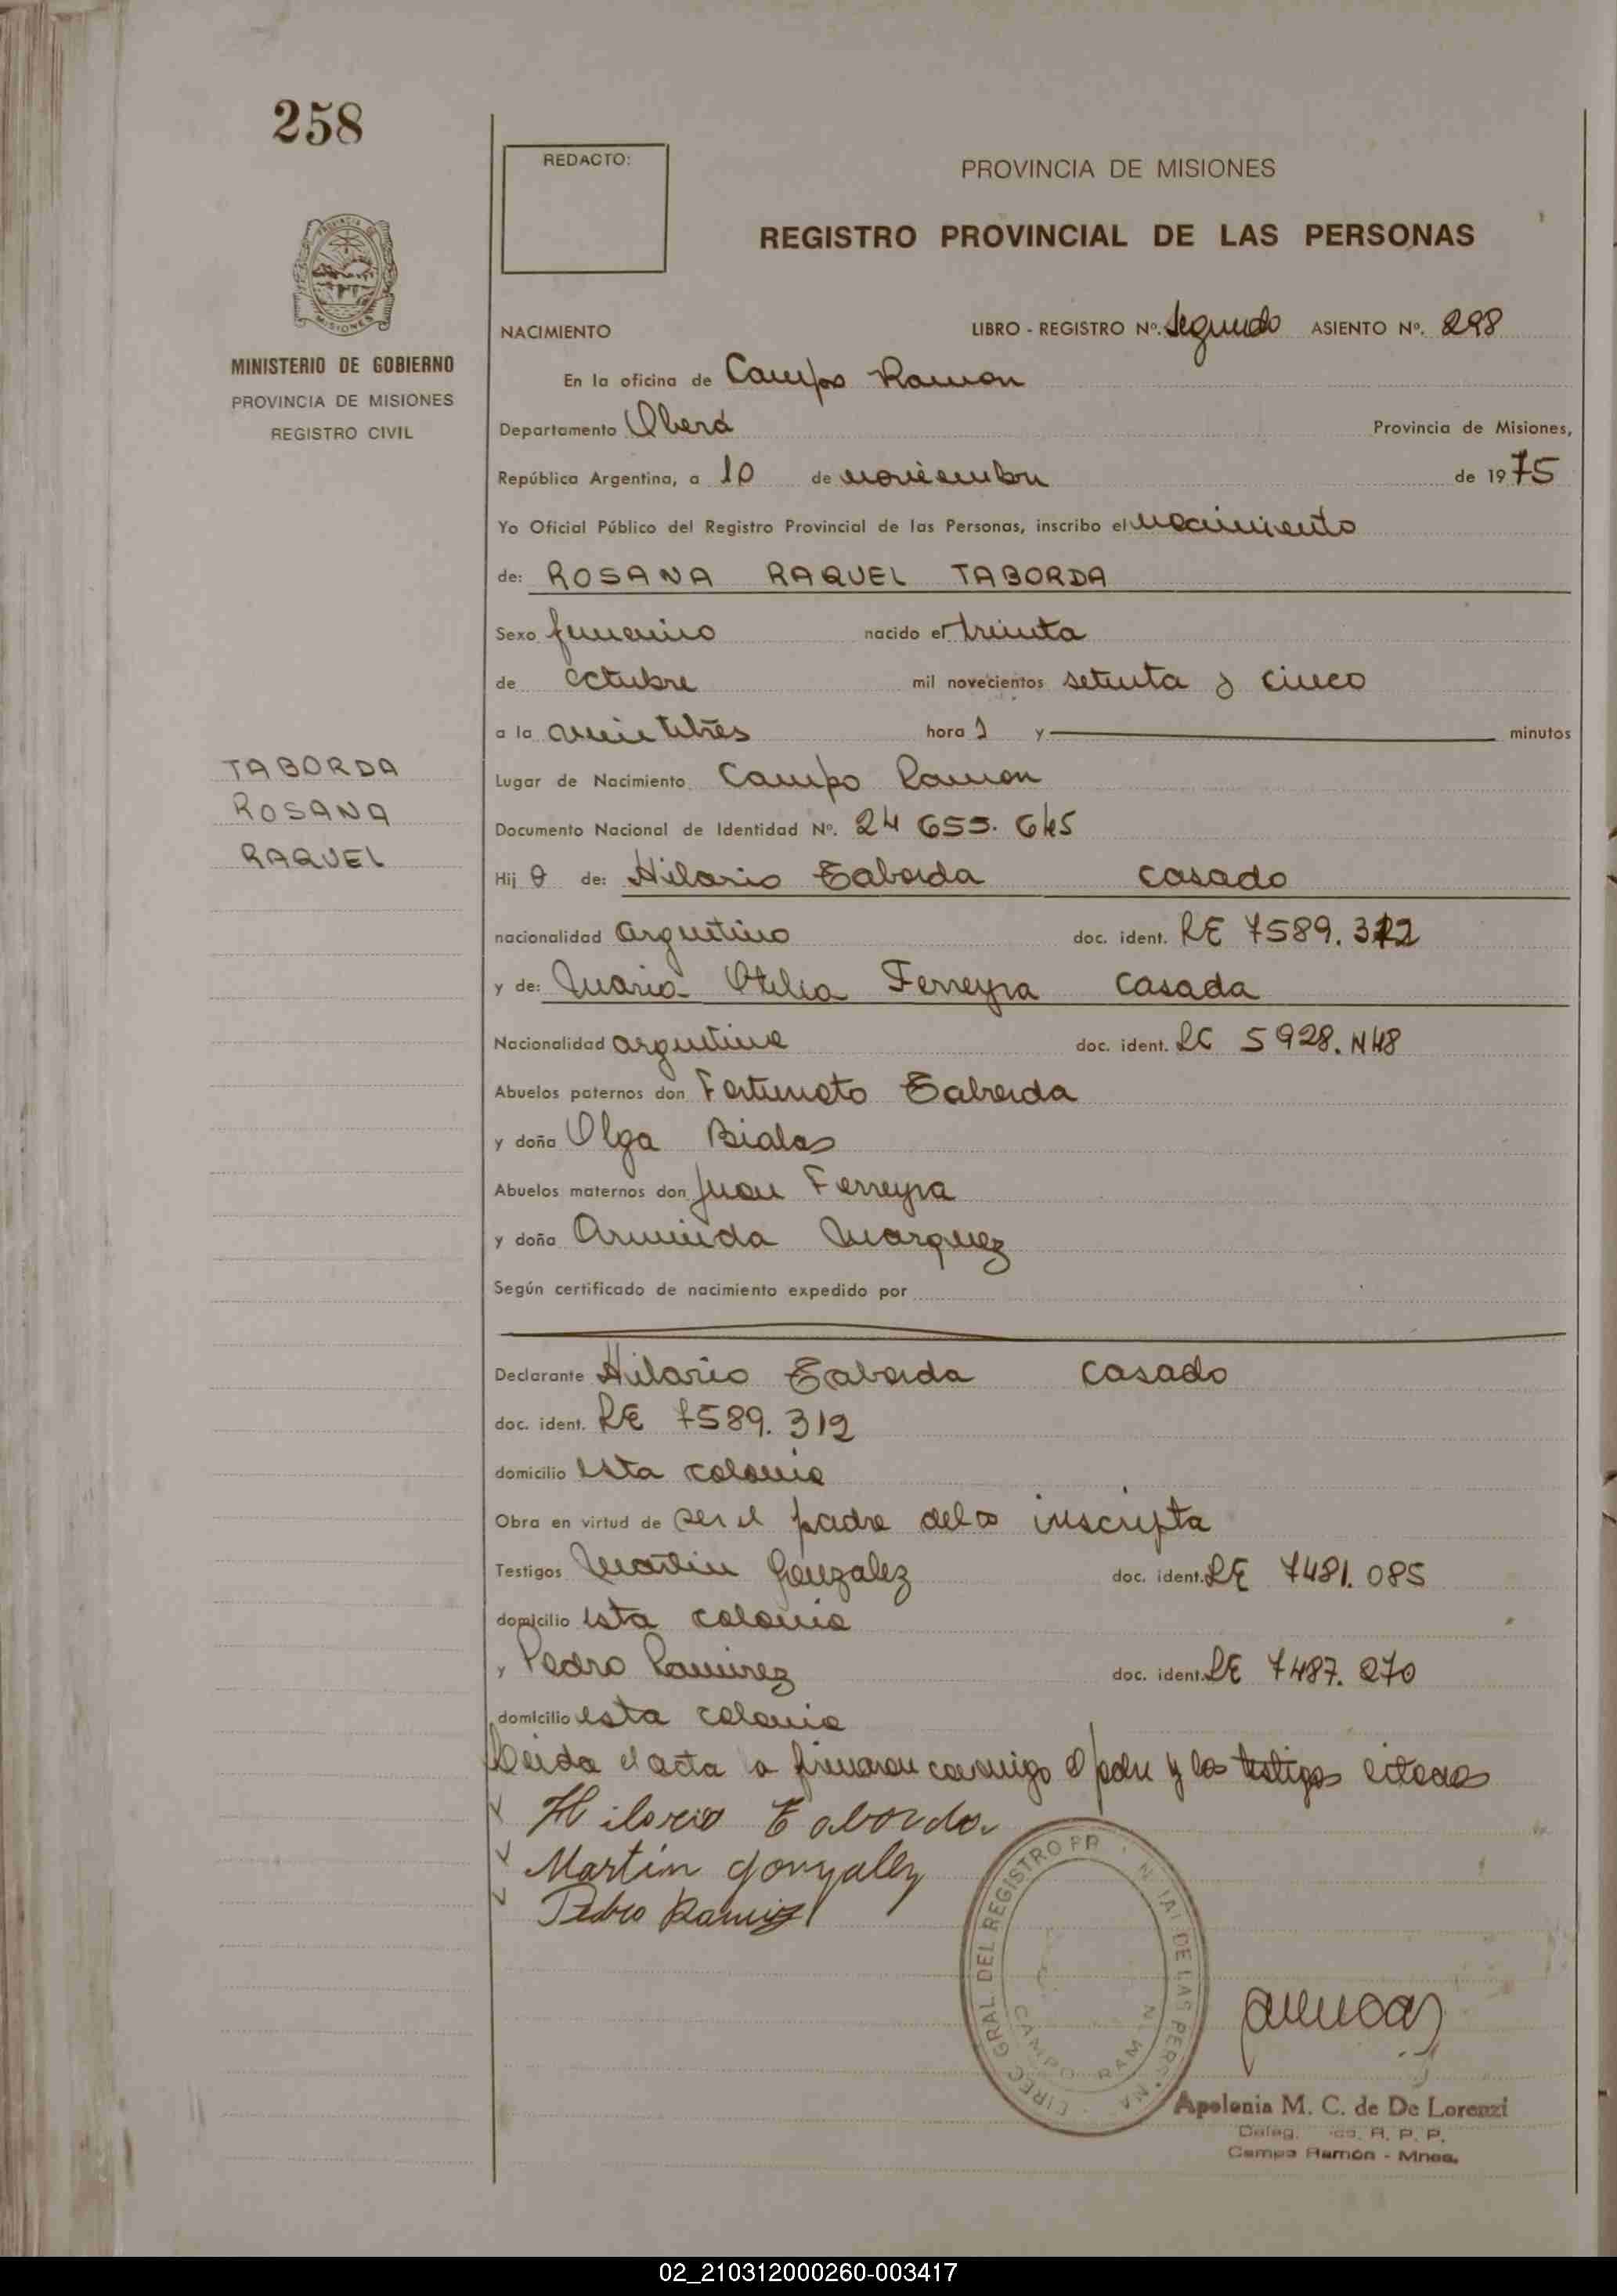 258
REDACTO:
PROVINCIA DE MISIONES
REGISTRO PROVINCIAL DE LAS PERSONAS
PROVINCIA DE
MISIONES
MINISTERIO DE GOBIERNO
PROVINCIA DE MISIONES
REGISTRO CIVIL
NACIMIENTO LIBRO - REGISTRO Nº. Segundo ASIENTO Nº. 298
En la oficina de Campo Ramon
Departamento Oberá Provincia de Misiones,
República Argentina, a 10 de noviembre de 1975
Yo Oficial Público del Registro Provincial de las Personas, inscribo el nacimiento
de: ROSANA RAQUEL TABORDA
Sexo femenino nacido el treinta
de octubre mil novecientos setenta y cinco
a la hora s y minutos
TABORDA
ROSANA
RAQUEL
Lugar de Nacimiento Campo Ramon
Documento Nacional de Identidad Nº. 24 655. 645
Hij a de: Hilario Taborda casado
nacionalidad argentino doc. ident. LE 7589.312
y de: Maria Otilia Ferreyra casada
Nacionalidad argentina doc. ident. LC 5928.448
Abuelos paternos don Fortunato Taborda
y doña Olga Bialas
Abuelos maternos don Juan Ferreyra
y doña Arminda Marquez
Según certificado de nacimiento expedido por
Declarante Hilario Taborda casado
doc. ident. LE 7589.312
domicilio esta colonia
Obra en virtud de ser el padre de la inscripta
Testigos Martin Gonzalez doc. ident. LE 7481.085
domicilio esta colonia
y Pedro Ramirez doc. ident. LE 7487.270
domicilio esta colonia
Leida el acta la firmaron conmigo el padre y los testigos citados
Hilario Taborda
Martin gonzalez
Pedro Ramirez
DIREC. GRAL. DEL REGISTRO PR DE LAS PERS
CAMPO RAM N
Apolonia M. C. de De Lorenzi
Deleg. R. P. P.
Campo Ramón - Mnes.
02_210312000260-003417